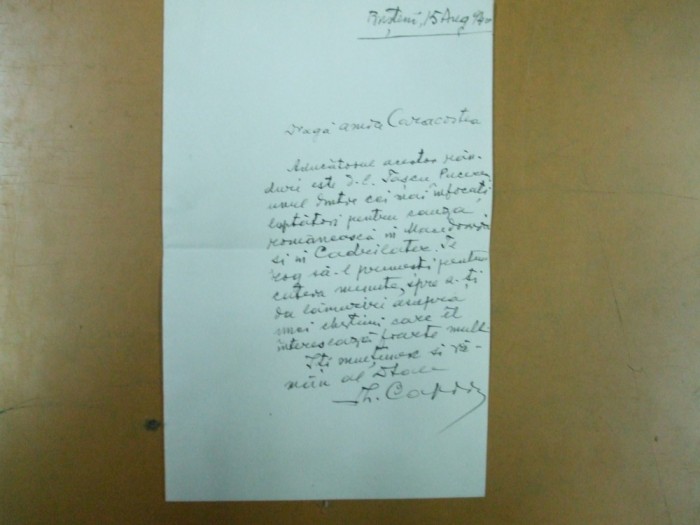 Bușteni, 15 Aug
Dragă amice Caracostea
Aducătorul acestor rân-
duri este d-l. Tașcu Pucerea
unul dintre cei mai înfocați
luptători pentru cauza
românească în Macedonia
și în Cadrilater. Te
rog să-l primești pentru
cateva minute, spre a-ți
da lămuriri asupra
unei chestiuni care îl
interesează foarte mult
Iți mulțumesc și ră-
mân al Dtale
Th. Capidan